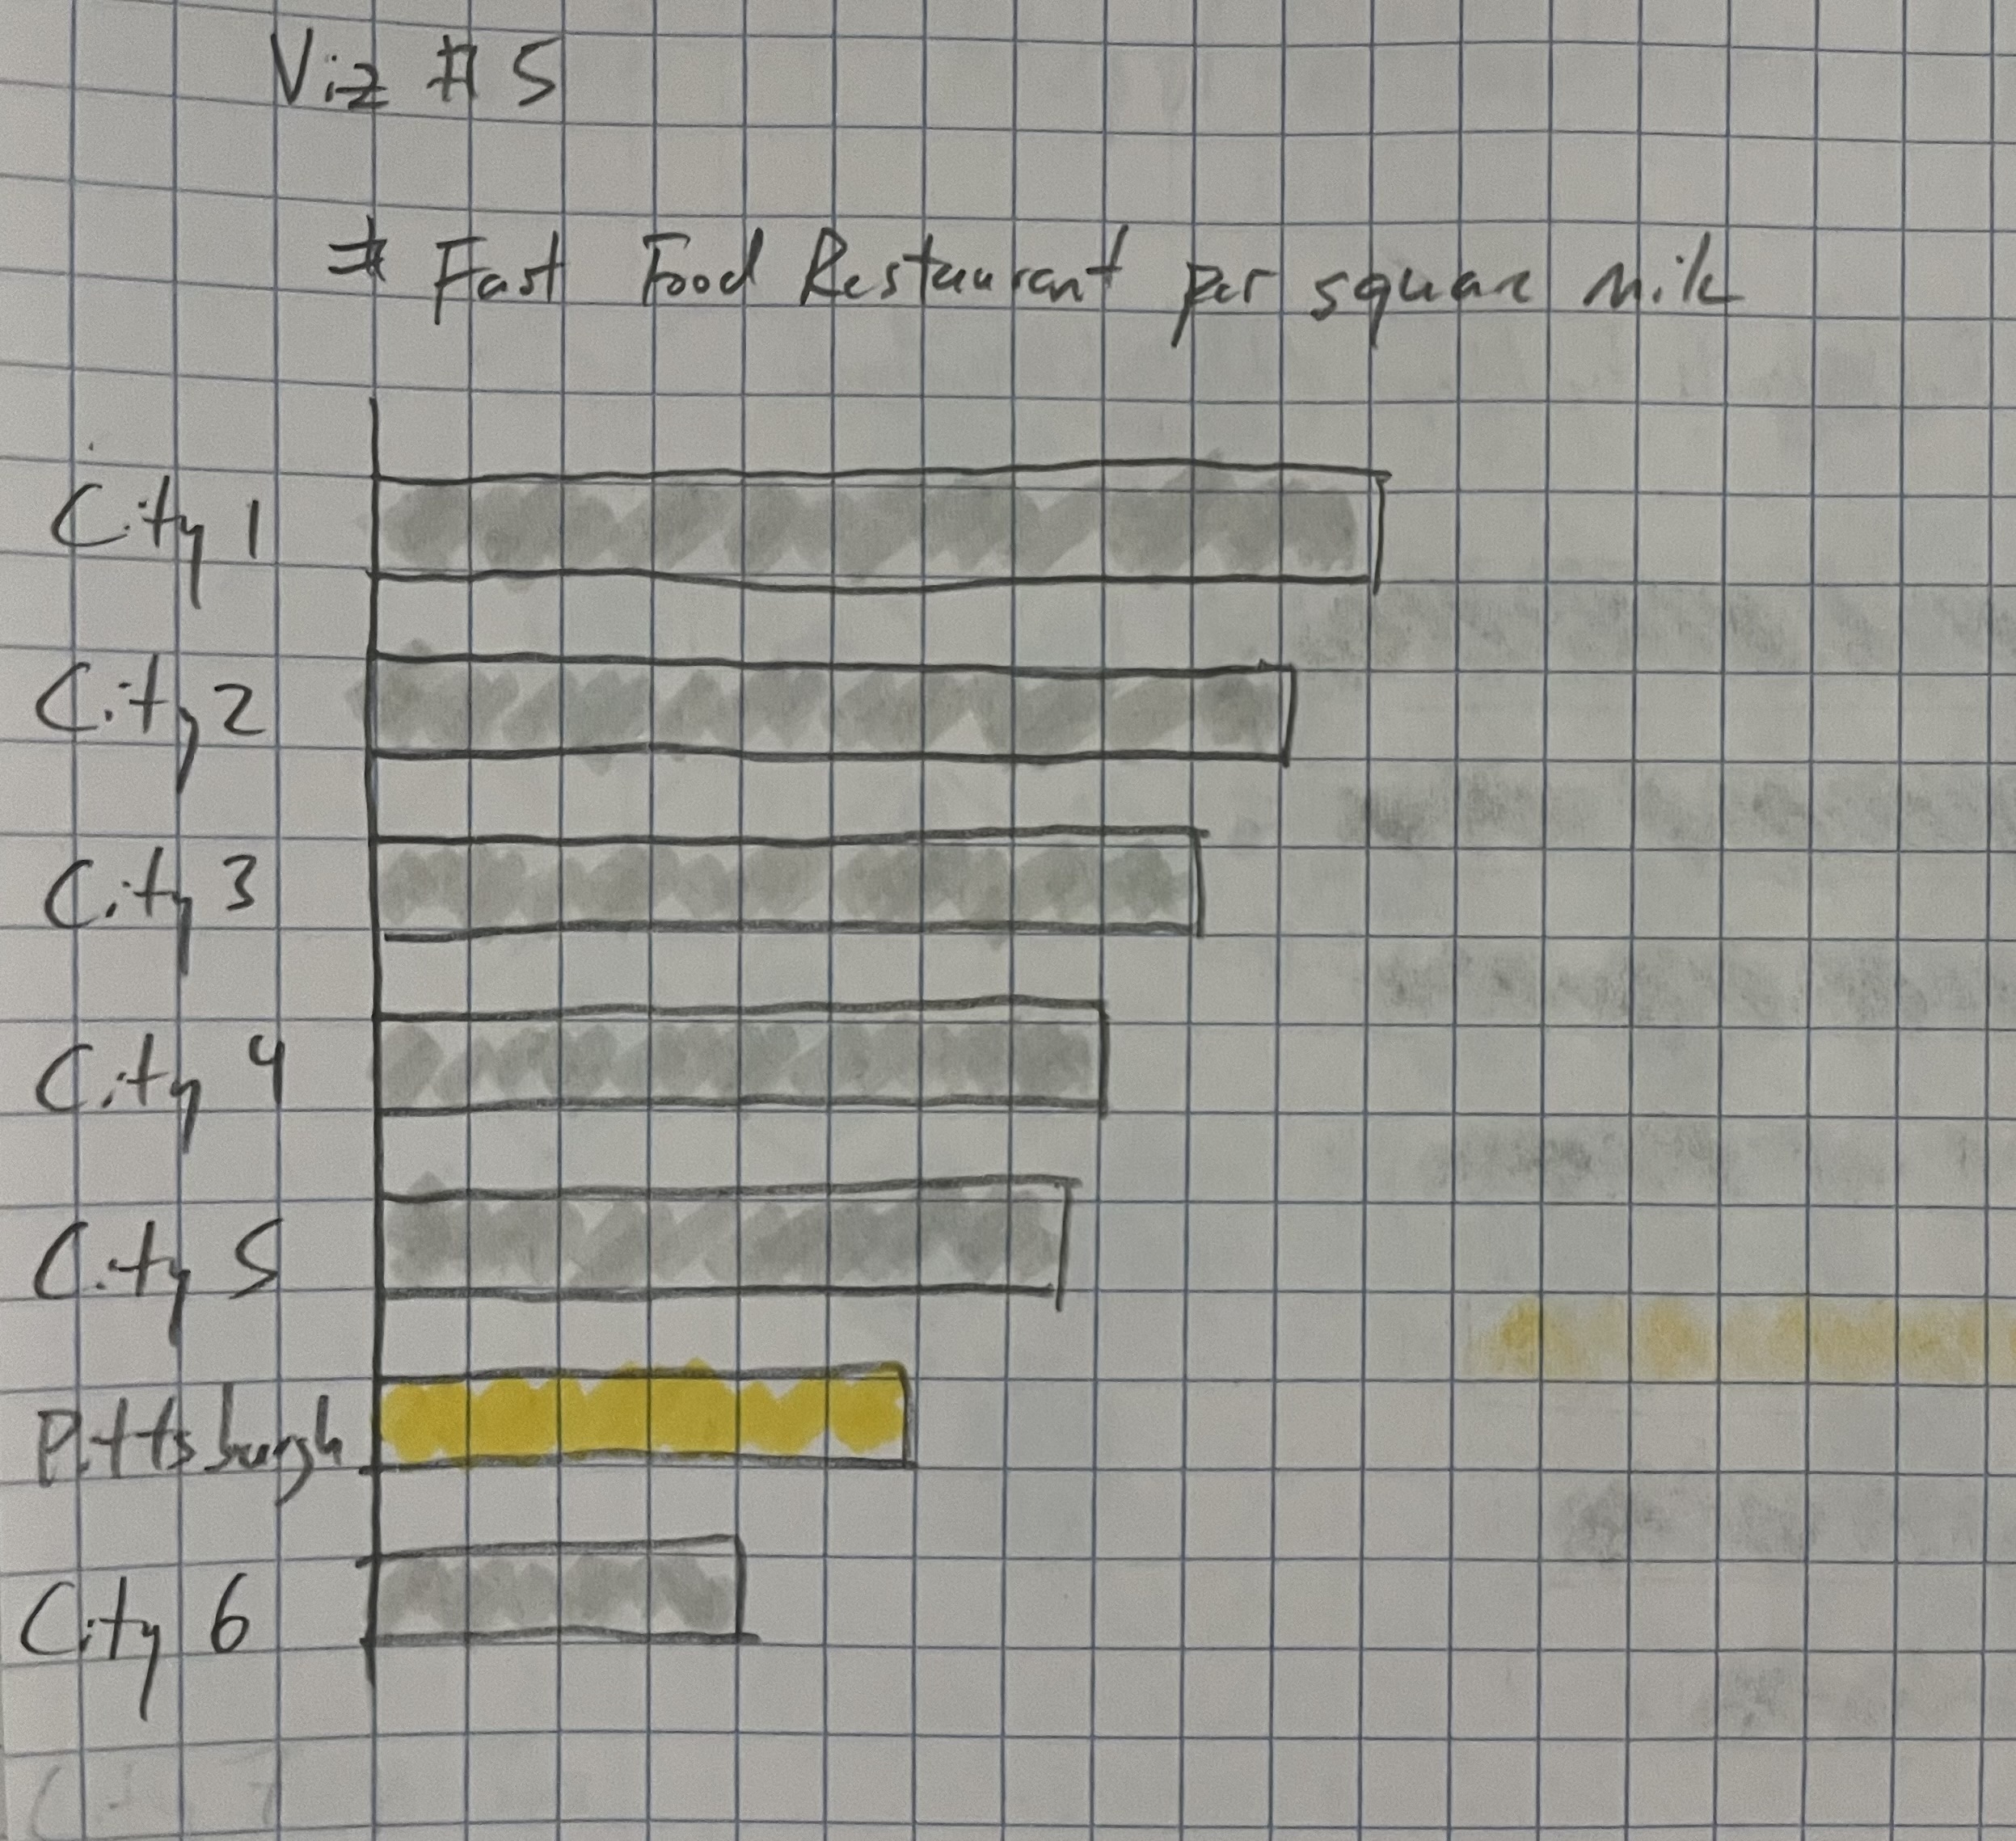 Viz # 5
# Fast Food Restaurant per square mile
City 1
City 2
City 3
City 4
City 5
Pittsburgh
City 6